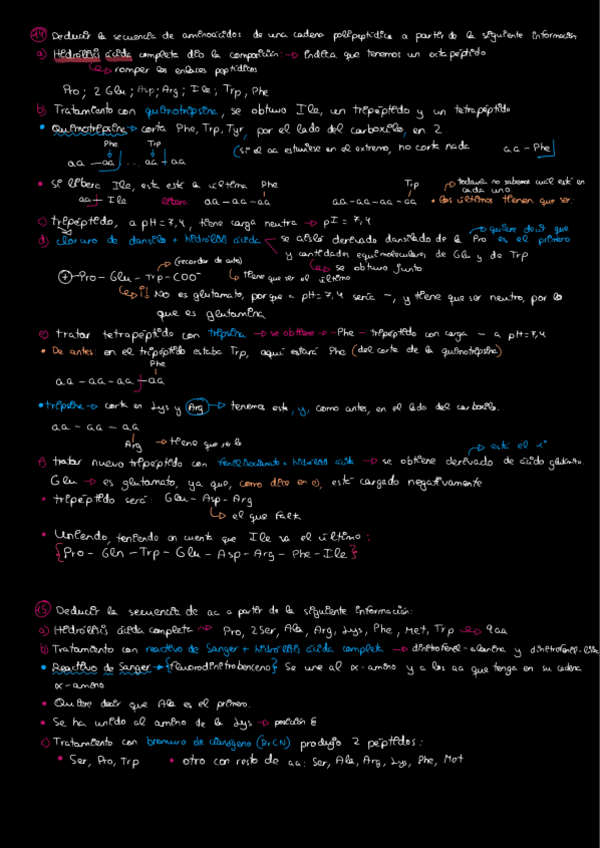 14 Deducir la secuencia de aminoácidos de una cadena polipeptídica a partir de la siguiente información
a) Hidrólisis ácida completa dio la composición: → indica que tenemos un octapéptido
↳ romper los enlaces peptídicos
Pro; 2 Glu; Asp; Arg; Ile; Trp, Phe
b) Tratamiento con quimotripsina, se obtuvo Ile, un tripéptido y un tetrapéptido
• Quimotripsina → corta Phe, Trp, Tyr, por el lado del carboxilo, en 2.
Phe Trp
aa - aa ... aa + aa (si el aa estuviese en el extremo, no corta nada aa - Phe
• Si libera Ile, este está la última Phe Trp → todavía no sabemos cuál está en cada uno.
aa + Ile libera aa - aa - aa aa - aa - aa - aa • Los últimos tienen que ser.
c) Tripéptido, a pH = 7,4, tiene carga neutra → pI = 7,4
d) Cloruro de dansilo + hidrólisis ácida → se aísla derivado dansilado de la Pro → quiere decir que es el primero
y cantidades equimoleculares de Glu y de Trp
(recordar de antes) ↳ se obtuvo junto
+ Pro - Glu - Trp - COO⁻ ↳ tiene que ser el último
↳ ¡! No es glutamato, porque a pH = 7,4 sería -, y tiene que ser neutro, por lo
que es glutamina
e) tratar tetrapéptido con tripsina → se obtiene Phe - tripéptido con carga - a pH = 7,4
• De antes: en el tripéptido estaba Trp, aquí estará Phe (del corte de la quimotripsina)
Phe
aa - aa - aa + aa
• tripsina → corta en Lys y Arg → tenemos este, y, como antes, en el lado del carboxilo.
aa - aa - aa
Arg → tiene que ser la
→ está el 1º
f) tratar nuevo tripéptido con fenilisotiocianato + hidrólisis ácida → se obtiene derivado de ácido glutámico.
Glu → es glutamato, ya que, como dice en e), está cargado negativamente
• tripéptido será: Glu - Asp - Arg
↳ el que falta
• Uniendo, teniendo en cuenta que Ile va el último:
{Pro - Gln - Trp - Glu - Asp - Arg - Phe - Ile}
15 Deducir la secuencia de aa a partir de la siguiente información:
a) Hidrólisis ácida completa → Pro, 2Ser, Ala, Arg, Lys, Phe, Met, Trp → 9aa
b) Tratamiento con reactivo de Sanger + hidrólisis ácida completa → dinitrofenil-alanina y dinitrofenil-lisina
• Reactivo de Sanger → {fluorodinitrobenceno} Se une al α-amino y a los aa que tenga en su cadena
α-amino
• Quiere decir que Ala es el primero.
• Se ha unido al amino de la Lys → posición ε
c) Tratamiento con bromuro de cianógeno (BrCN) produjo 2 péptidos:
• Ser, Pro, Trp • otro con resto de aa: Ser, Ala, Arg, Lys, Phe, Met